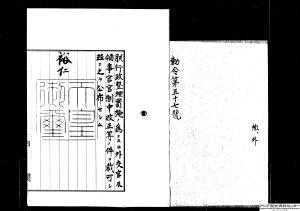 勅令第五十七號
朕行政整理實施ノ為ニスル外交官及
領事官官制中改正等ノ件ヲ裁可シ
茲ニ之ヲ公布セシム
裕仁
天皇
御璽